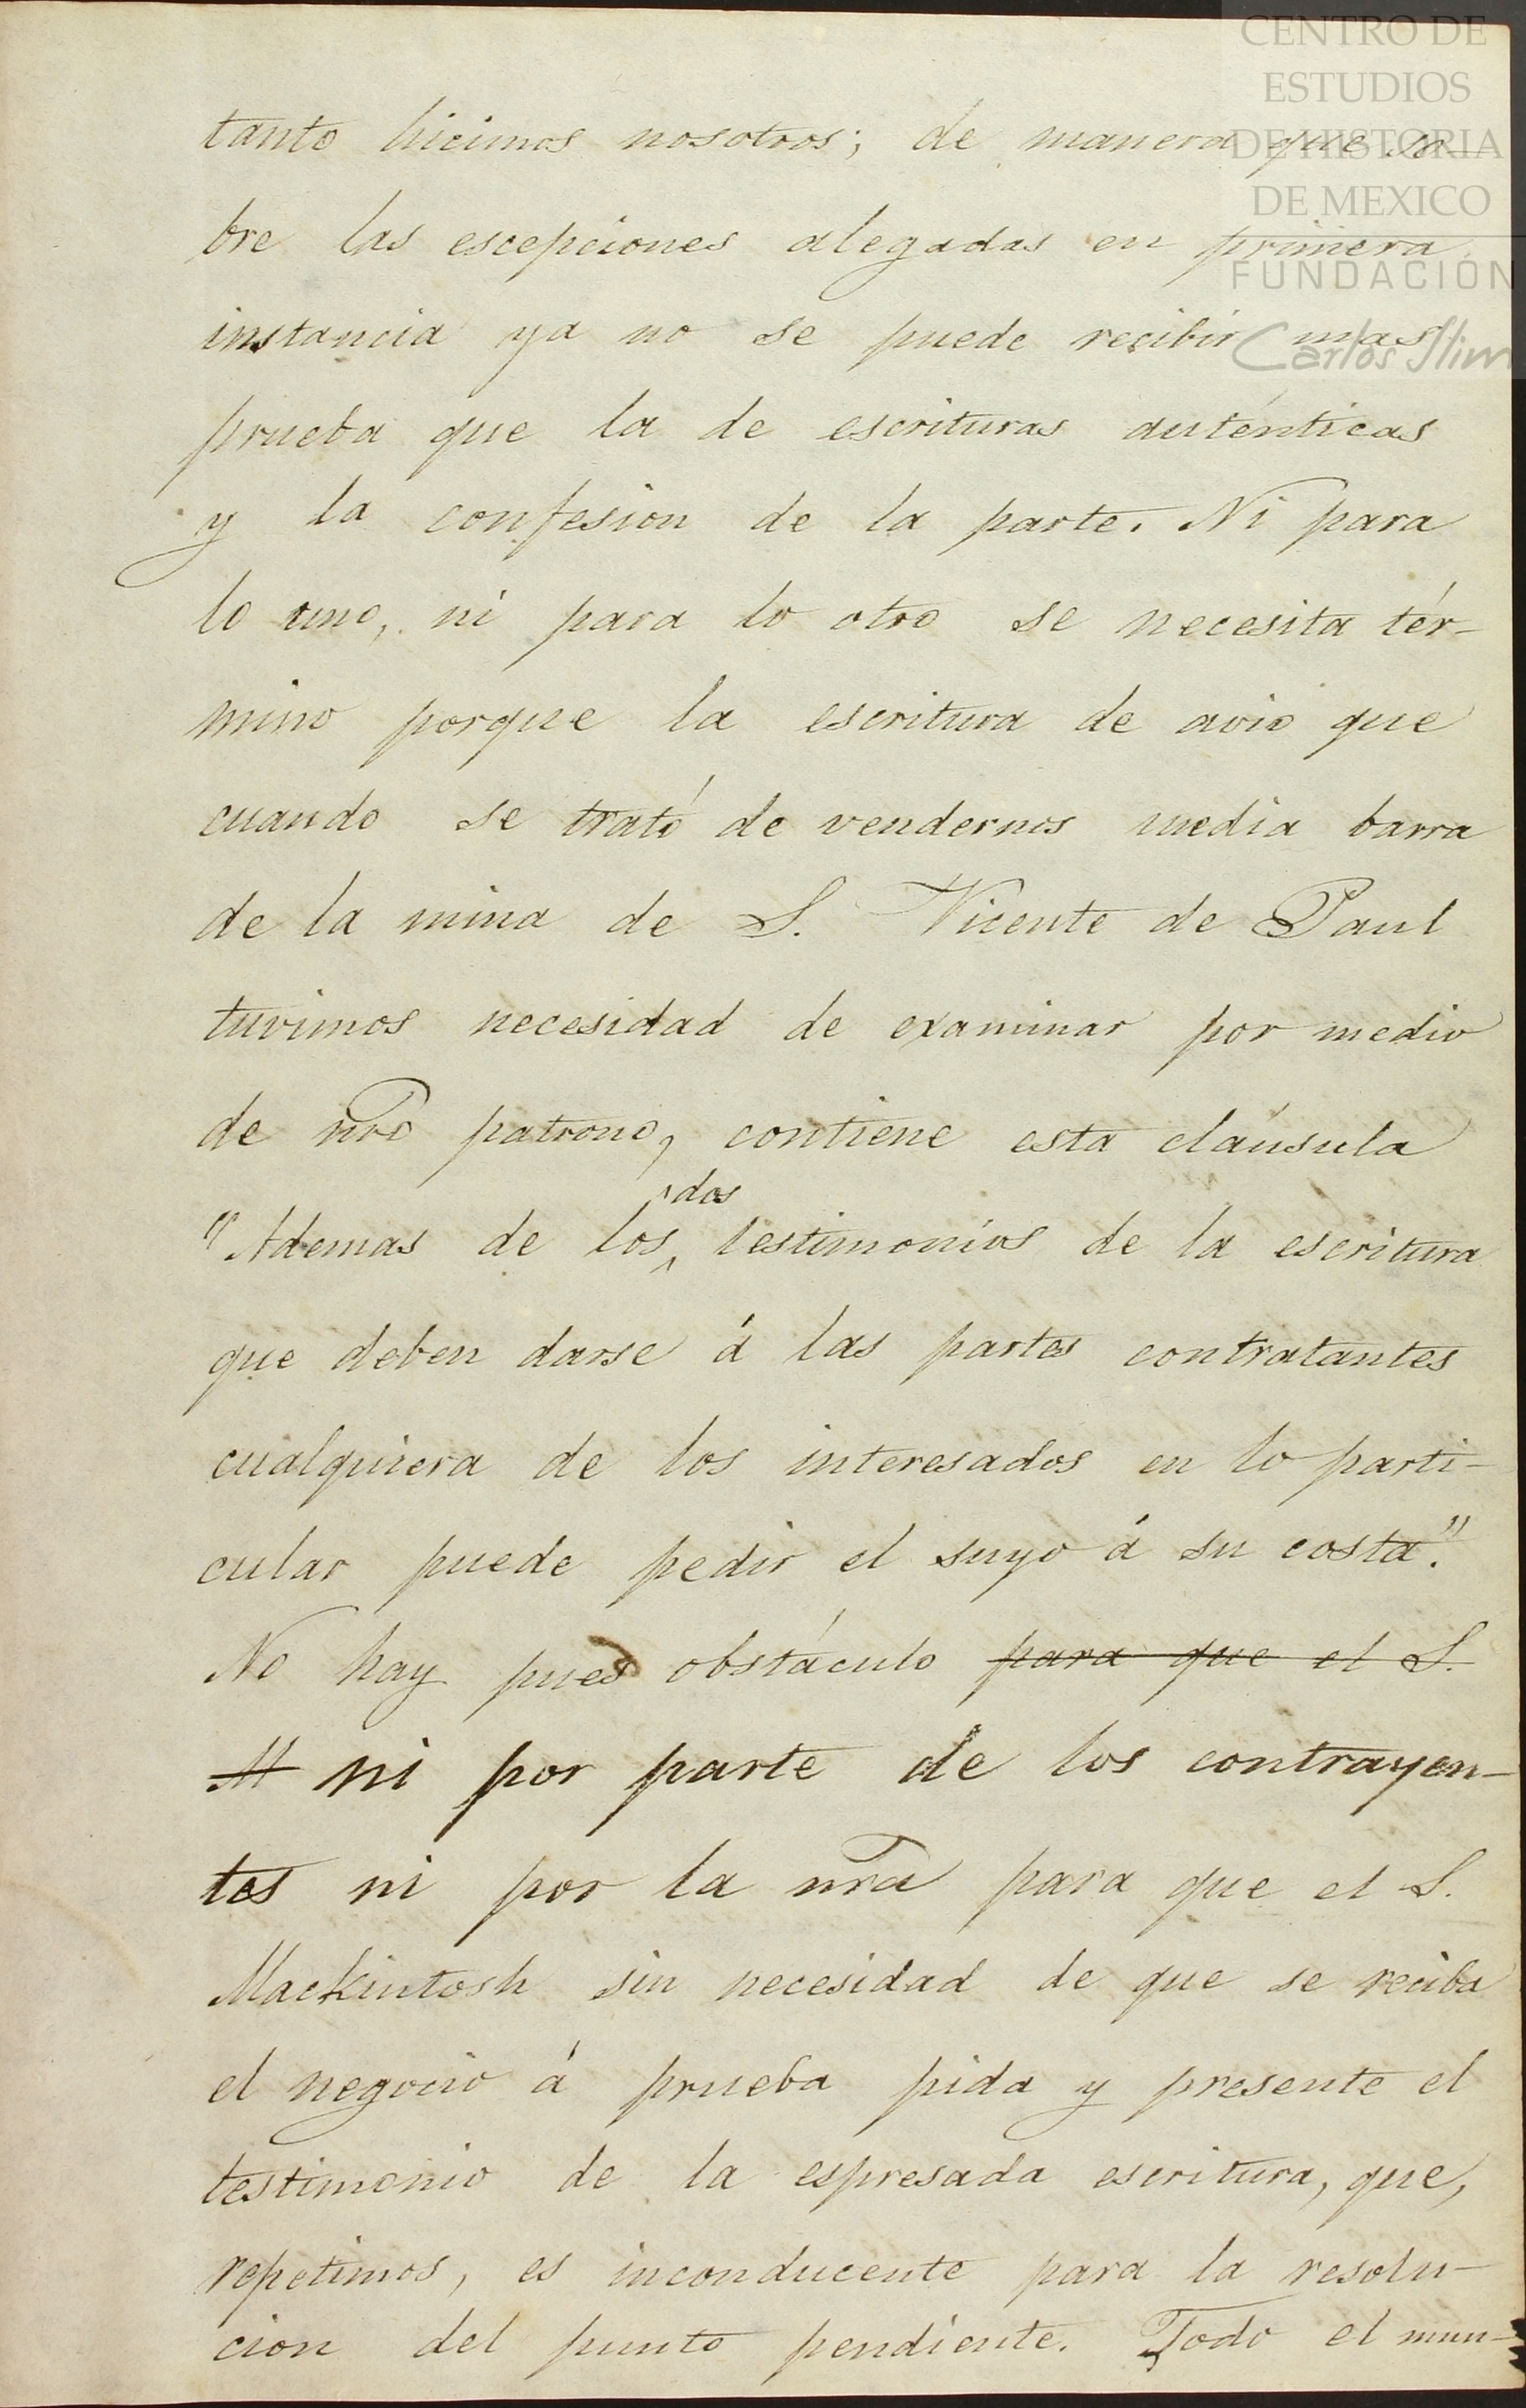 CENTRO DE
ESTUDIOS
DE HISTORIA
DE MEXICO
FUNDACIÓN
Carlos Slim
tanto hicimos nosotros; de manera que so-
bre las escepciones alegadas en primera
instancia ya no se puede recibir mas
prueba que la de escrituras auténticas
y la confesion de la parte. Ni para
lo uno, ni para lo otro se necesita tér-
mino porque la escritura de avio que
cuando se trató de vendernos media barra
de la mina de S. Vicente de Paul
tuvimos necesidad de examinar por medio
de nro patrono, contiene esta cláusula
"Ademas de los dos testimonios de la escritura
que deben darse á las partes contratantes
cualquiera de los interesados en lo parti-
cular puede pedir el suyo á su costa."
No hay pues obstáculo para que el S.
M ni por parte de los contrayen-
tes ni por la nra para que el S.
Mackintosh sin necesidad de que se reciba
el negocio á prueba pida y presente el
testimonio de la espresada escritura, que,
repetimos, es inconducente para la resolu-
cion del punto pendiente. Todo el mun-